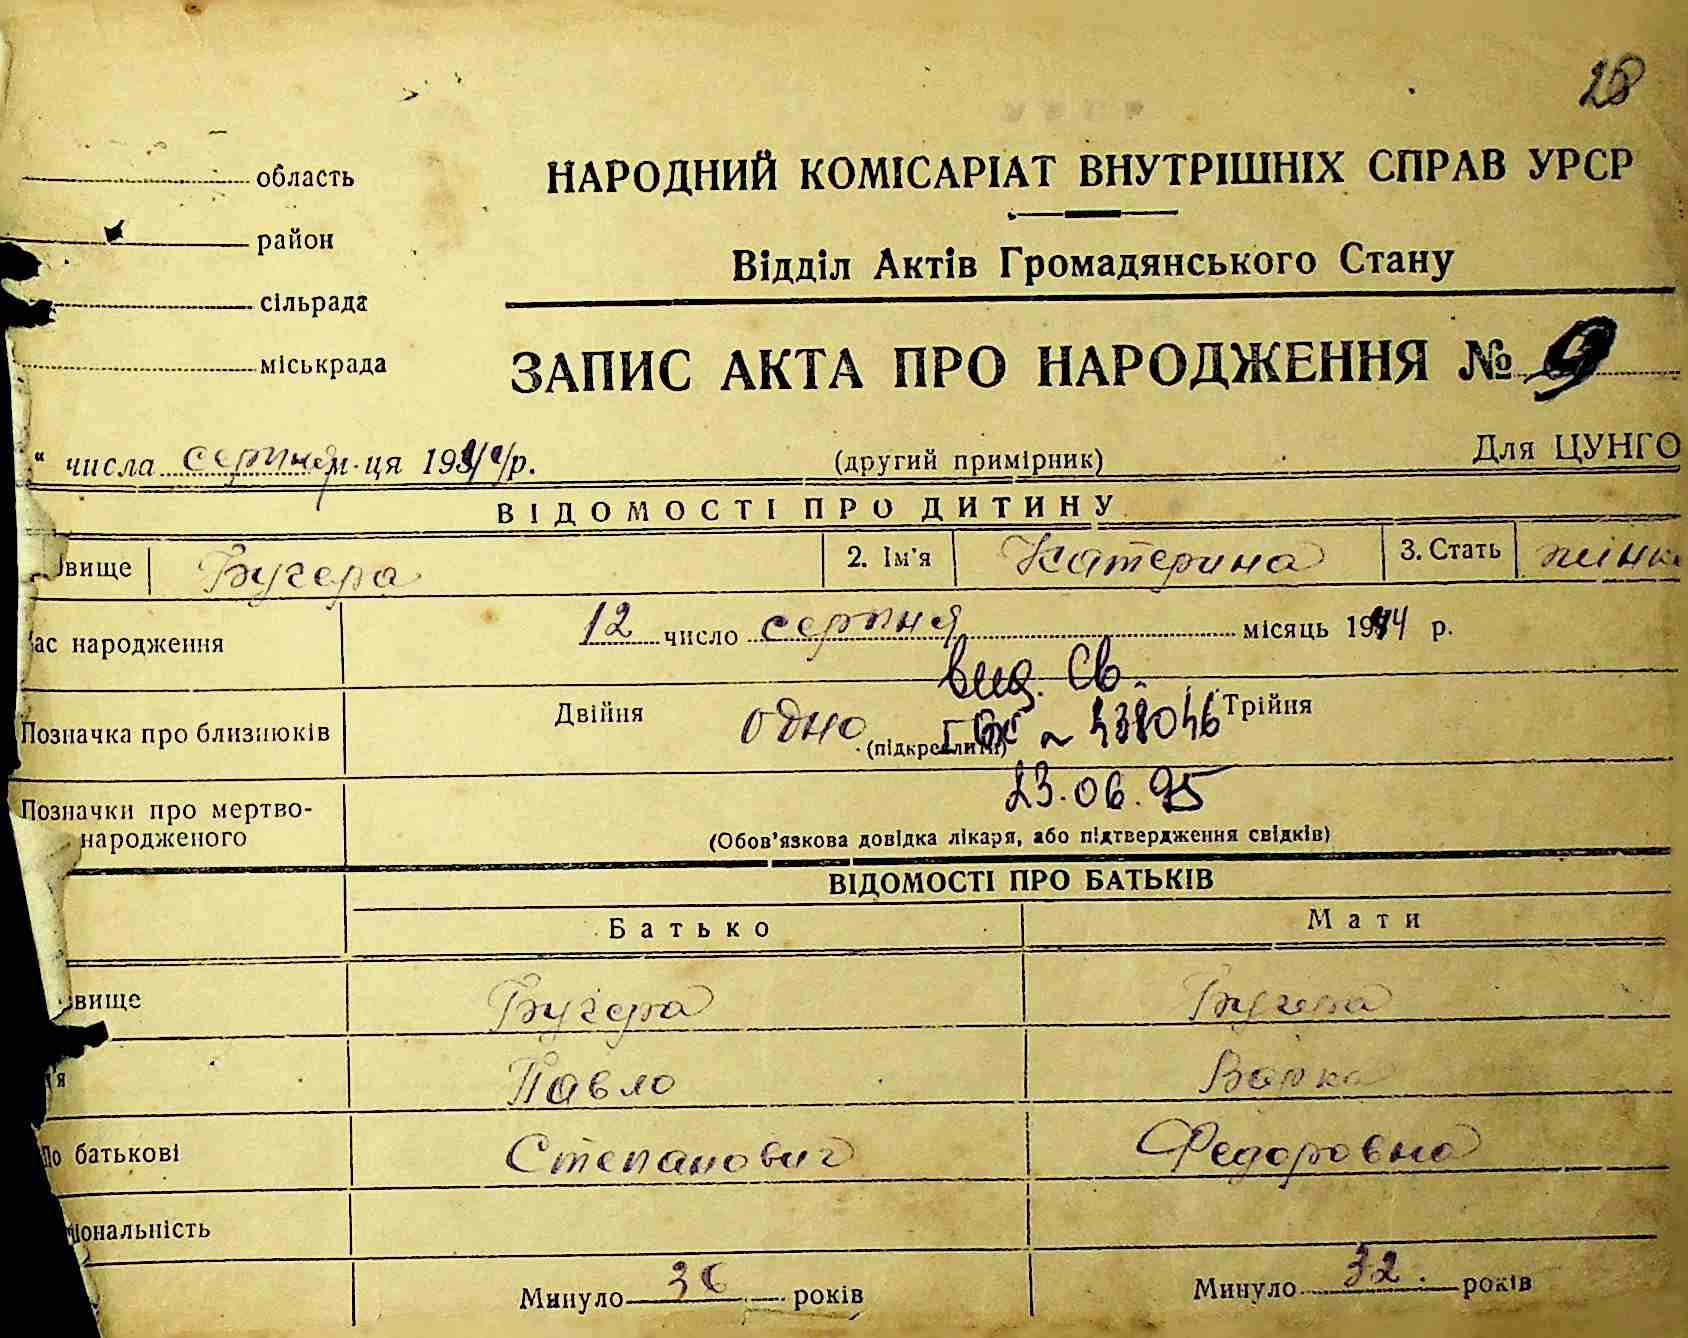 28
область
НАРОДНИЙ КОМІСАРІАТ ВНУТРІШНІХ СПРАВ УРСР
район
Відділ Актів Громадянського Стану
сільрада
ЗАПИС АКТА ПРО НАРОДЖЕННЯ № 9
міськрада
“ числа серпня м-ця 1944 р. (другий примірник) Для ЦУНГО
ВІДОМОСТІ ПРО ДИТИНУ
вище Бугера 2. Ім'я Катерина 3. Стать жінк
ас народження 12 число серпня місяць 1944 р.
вид. Св.
Позначка про близнюків Двійня одно (підкреслити) ~ 438046 Трійня
23.06.95
Позначки про мертво-
народженого (Обов'язкова довідка лікаря, або підтвердження свідків)
ВІДОМОСТІ ПРО БАТЬКІВ
Батько Мати
звище Бугера Бугера
'я Павло Варка
По батькові Степанович Федоровна
ціональність
Минуло 36 років Минуло 32 років